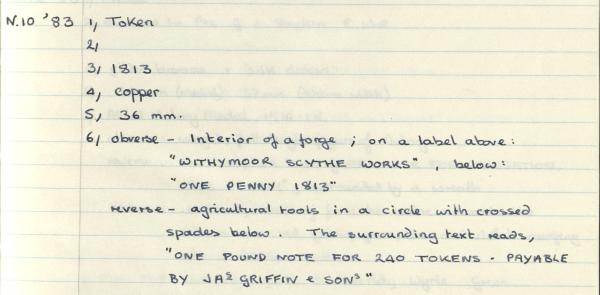 N.10 '83 1, Token
2,
3, 1813
4, copper
5, 36 mm.
6, obverse - Interior of a forge ; on a label above :
"WITHYMOOR SCYTHE WORKS" , below :
"ONE PENNY 1813"
reverse - agricultural tools in a circle with crossed
spades below . The surrounding text reads,
"ONE POUND NOTE FOR 240 TOKENS - PAYABLE
BY JAS GRIFFIN & SONS"